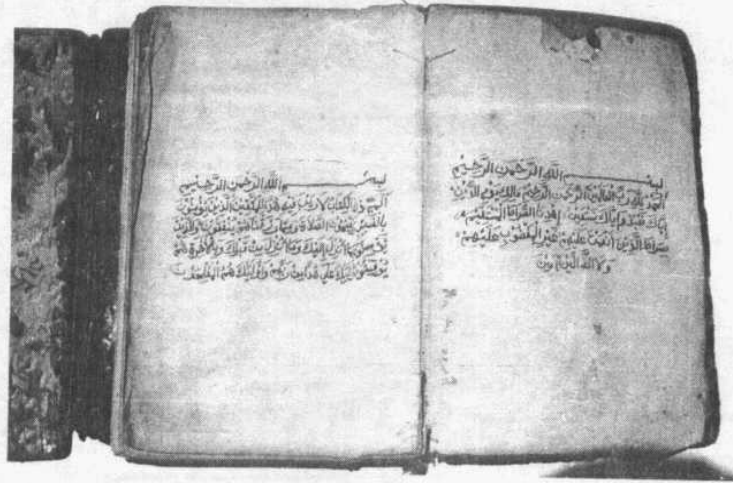 بِسْمِ اللَّهِ الرَّحْمٰنِ الرَّحِيْمِ
اَلْحَمْدُ لِلّٰهِ رَبِّ الْعَالَمِيْنَ الرَّحْمٰنِ الرَّحِيْمِ مَالِكِ يَوْمِ الدِّيْنِ
اِيَّاكَ نَعْبُدُ وَاِيَّاكَ نَسْتَعِيْنُ اِهْدِنَا الصِّرَاطَ الْمُسْتَقِيْمَ
صِرَاطَ الَّذِيْنَ اَنْعَمْتَ عَلَيْهِمْ غَيْرِ الْمَغْضُوْبِ عَلَيْهِمْ
وَلَا الضَّالِّيْنَ اٰمِيْن
بِسْمِ اللَّهِ الرَّحْمٰنِ الرَّحِيْمِ
الٓمّٓ ذٰلِكَ الْكِتَابُ لَا رَيْبَ فِيْهِ هُدًى لِلْمُتَّقِيْنَ الَّذِيْنَ يُؤْمِنُوْنَ
بِالْغَيْبِ وَيُقِيْمُوْنَ الصَّلَاةَ وَمِمَّا رَزَقْنَاهُمْ يُنْفِقُوْنَ وَالَّذِيْنَ
يُؤْمِنُوْنَ بِمَا اُنْزِلَ اِلَيْكَ وَمَا اُنْزِلَ مِنْ قَبْلِكَ وَبِالْاٰخِرَةِ هُمْ
يُوْقِنُوْنَ اُولٰئِكَ عَلٰى هُدًى مِنْ رَبِّهِمْ وَاُولٰئِكَ هُمُ الْمُفْلِحُوْنَ